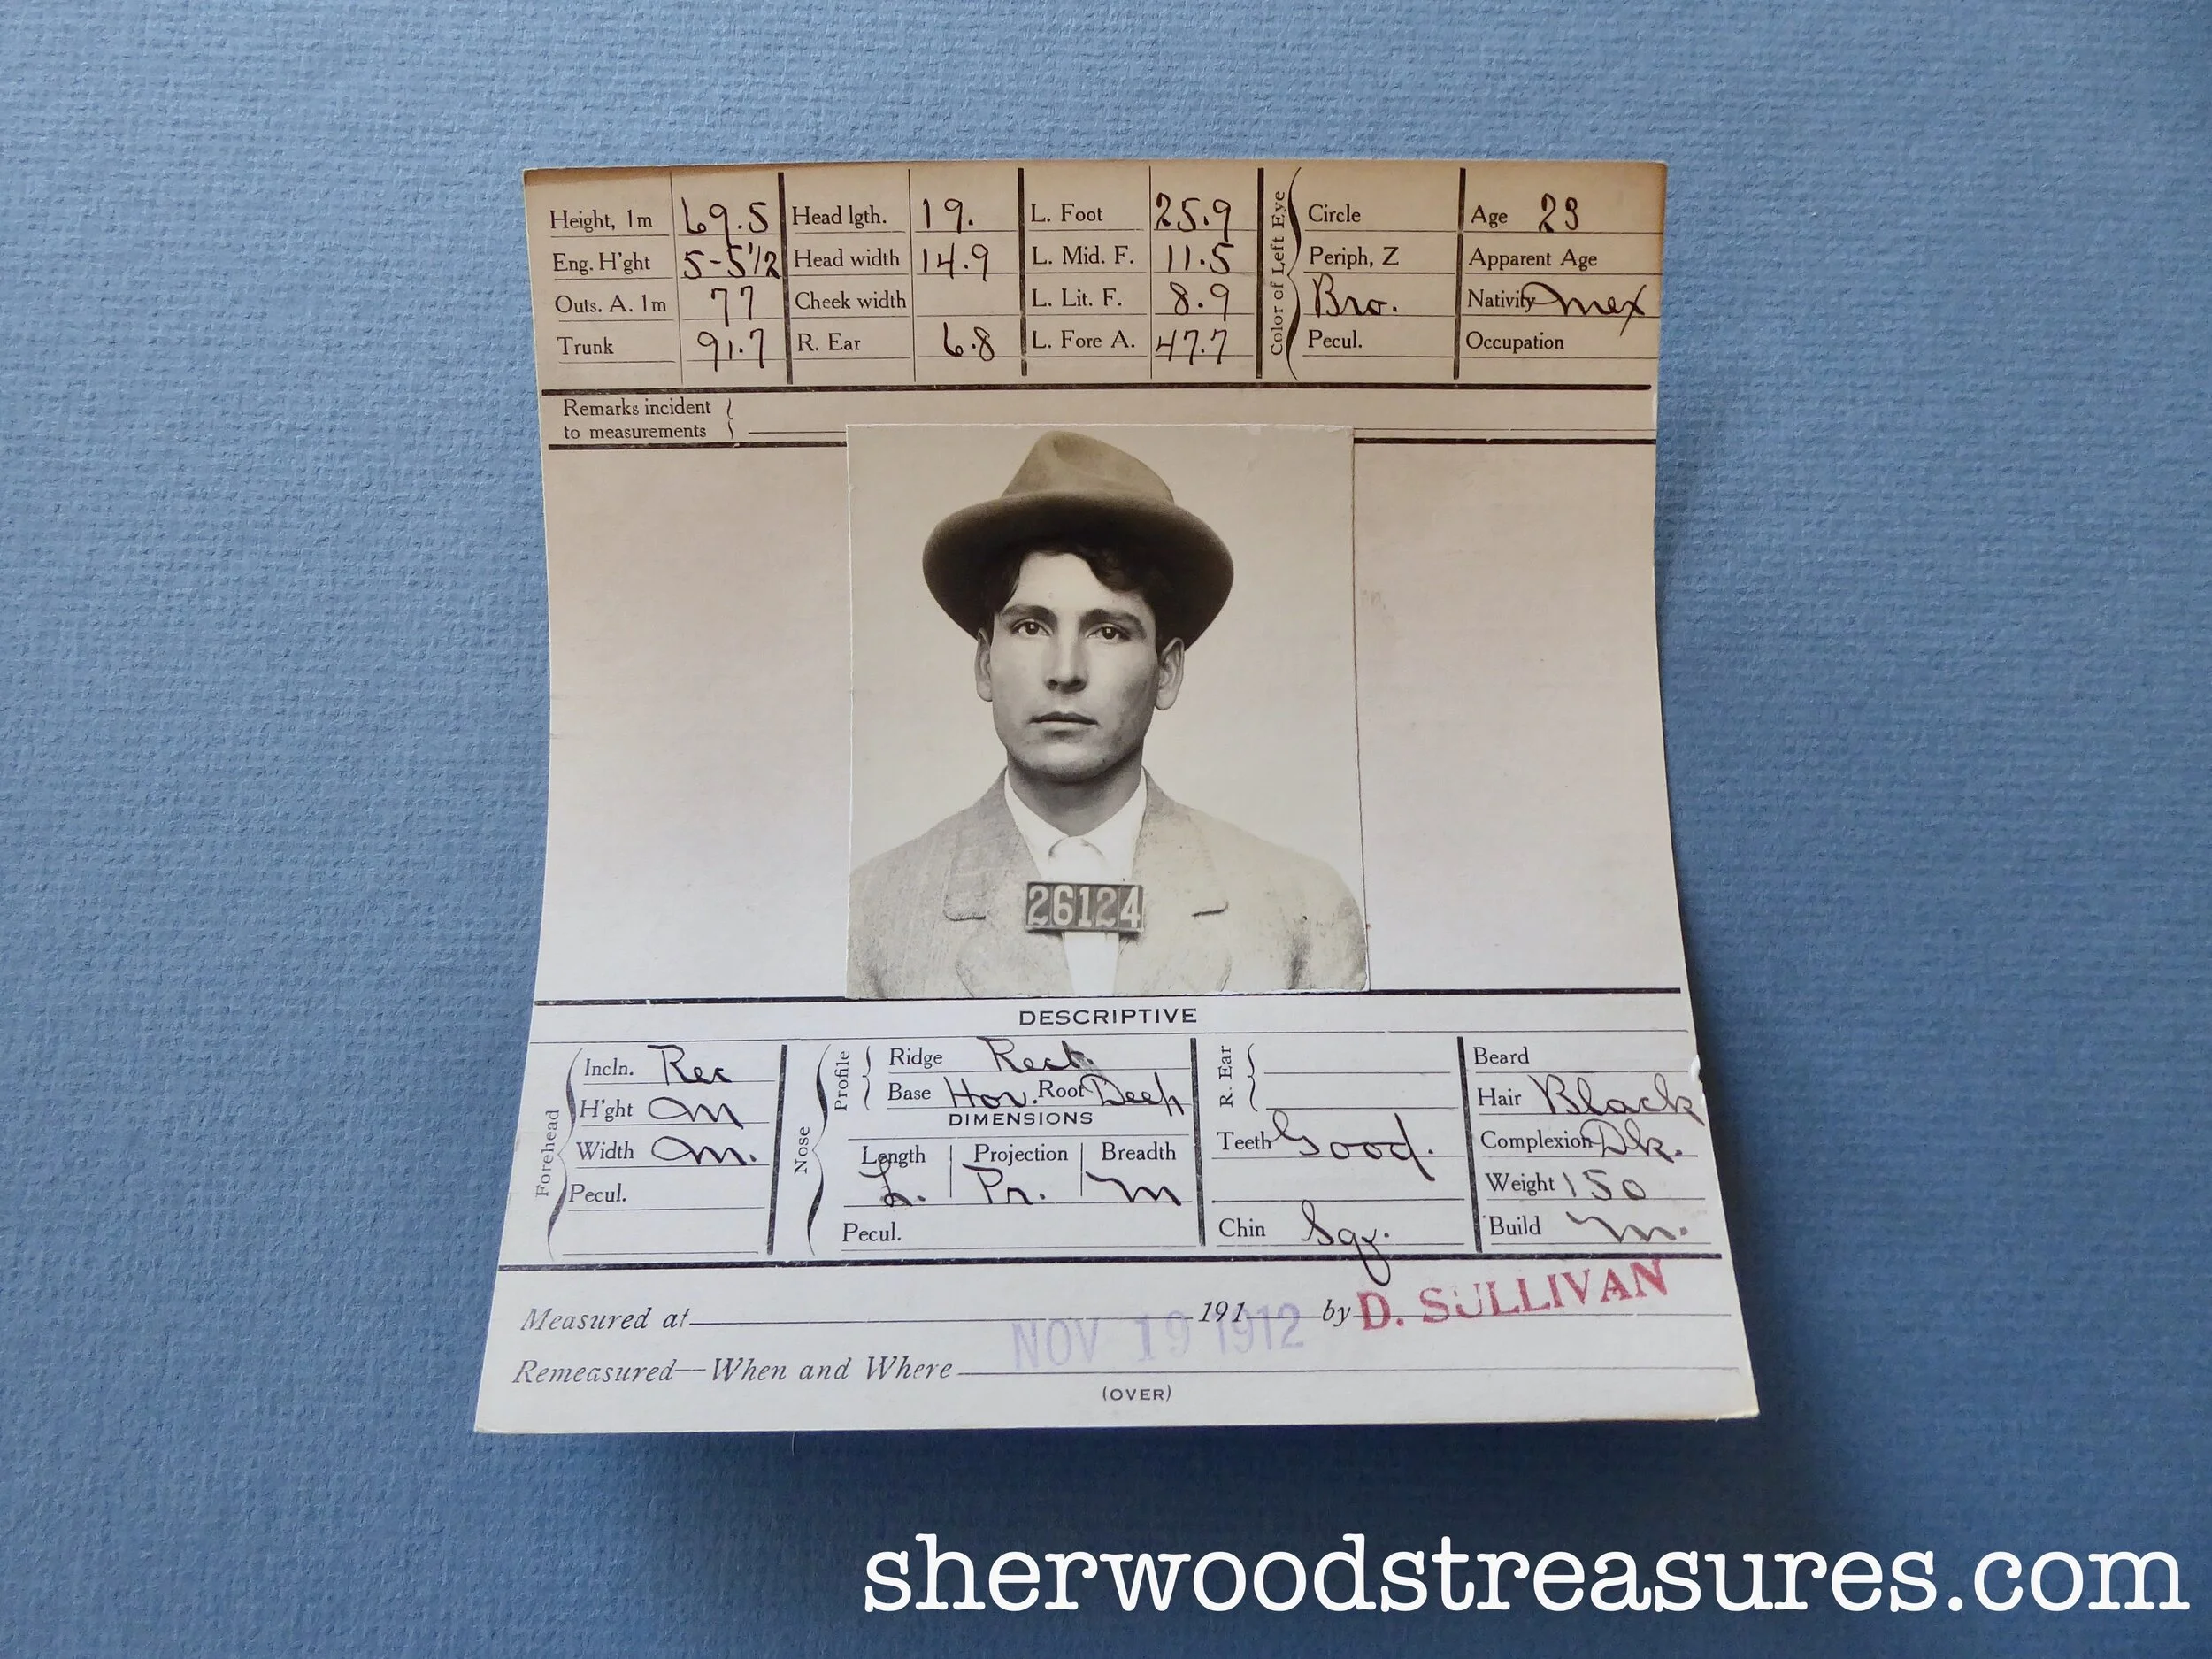 Height, 1m 69.5 Head lgth. 19. L. Foot 25.9 Circle Age 23
Eng. H'ght 5-5 1/2 Head width 14.9 L. Mid. F. 11.5 Periph, Z Apparent Age
Outs. A. 1m 77 Cheek width L. Lit. F. 8.9 Bro. Nativity Mex
Trunk 91.7 R. Ear 6.8 L. Fore A. 47.7 Pecul. Occupation
Color of Left Eye
Remarks incident
to measurements
26124
DESCRIPTIVE
Forehead
Incln. Rec
H'ght m
Width m.
Pecul.
Nose
Profile
Ridge Rect.
Base Hor. Root Deep
DIMENSIONS
Length Projection Breadth
L. Pr. m
Pecul.
R. Ear
Teeth Good.
Chin Sqr.
Beard
Hair Black
Complexion Dk.
Weight 150
Build m.
Measured at 191 by D. SULLIVAN
NOV 19 1912
Remeasured—When and Where
(OVER)
sherwoodstreasures.com